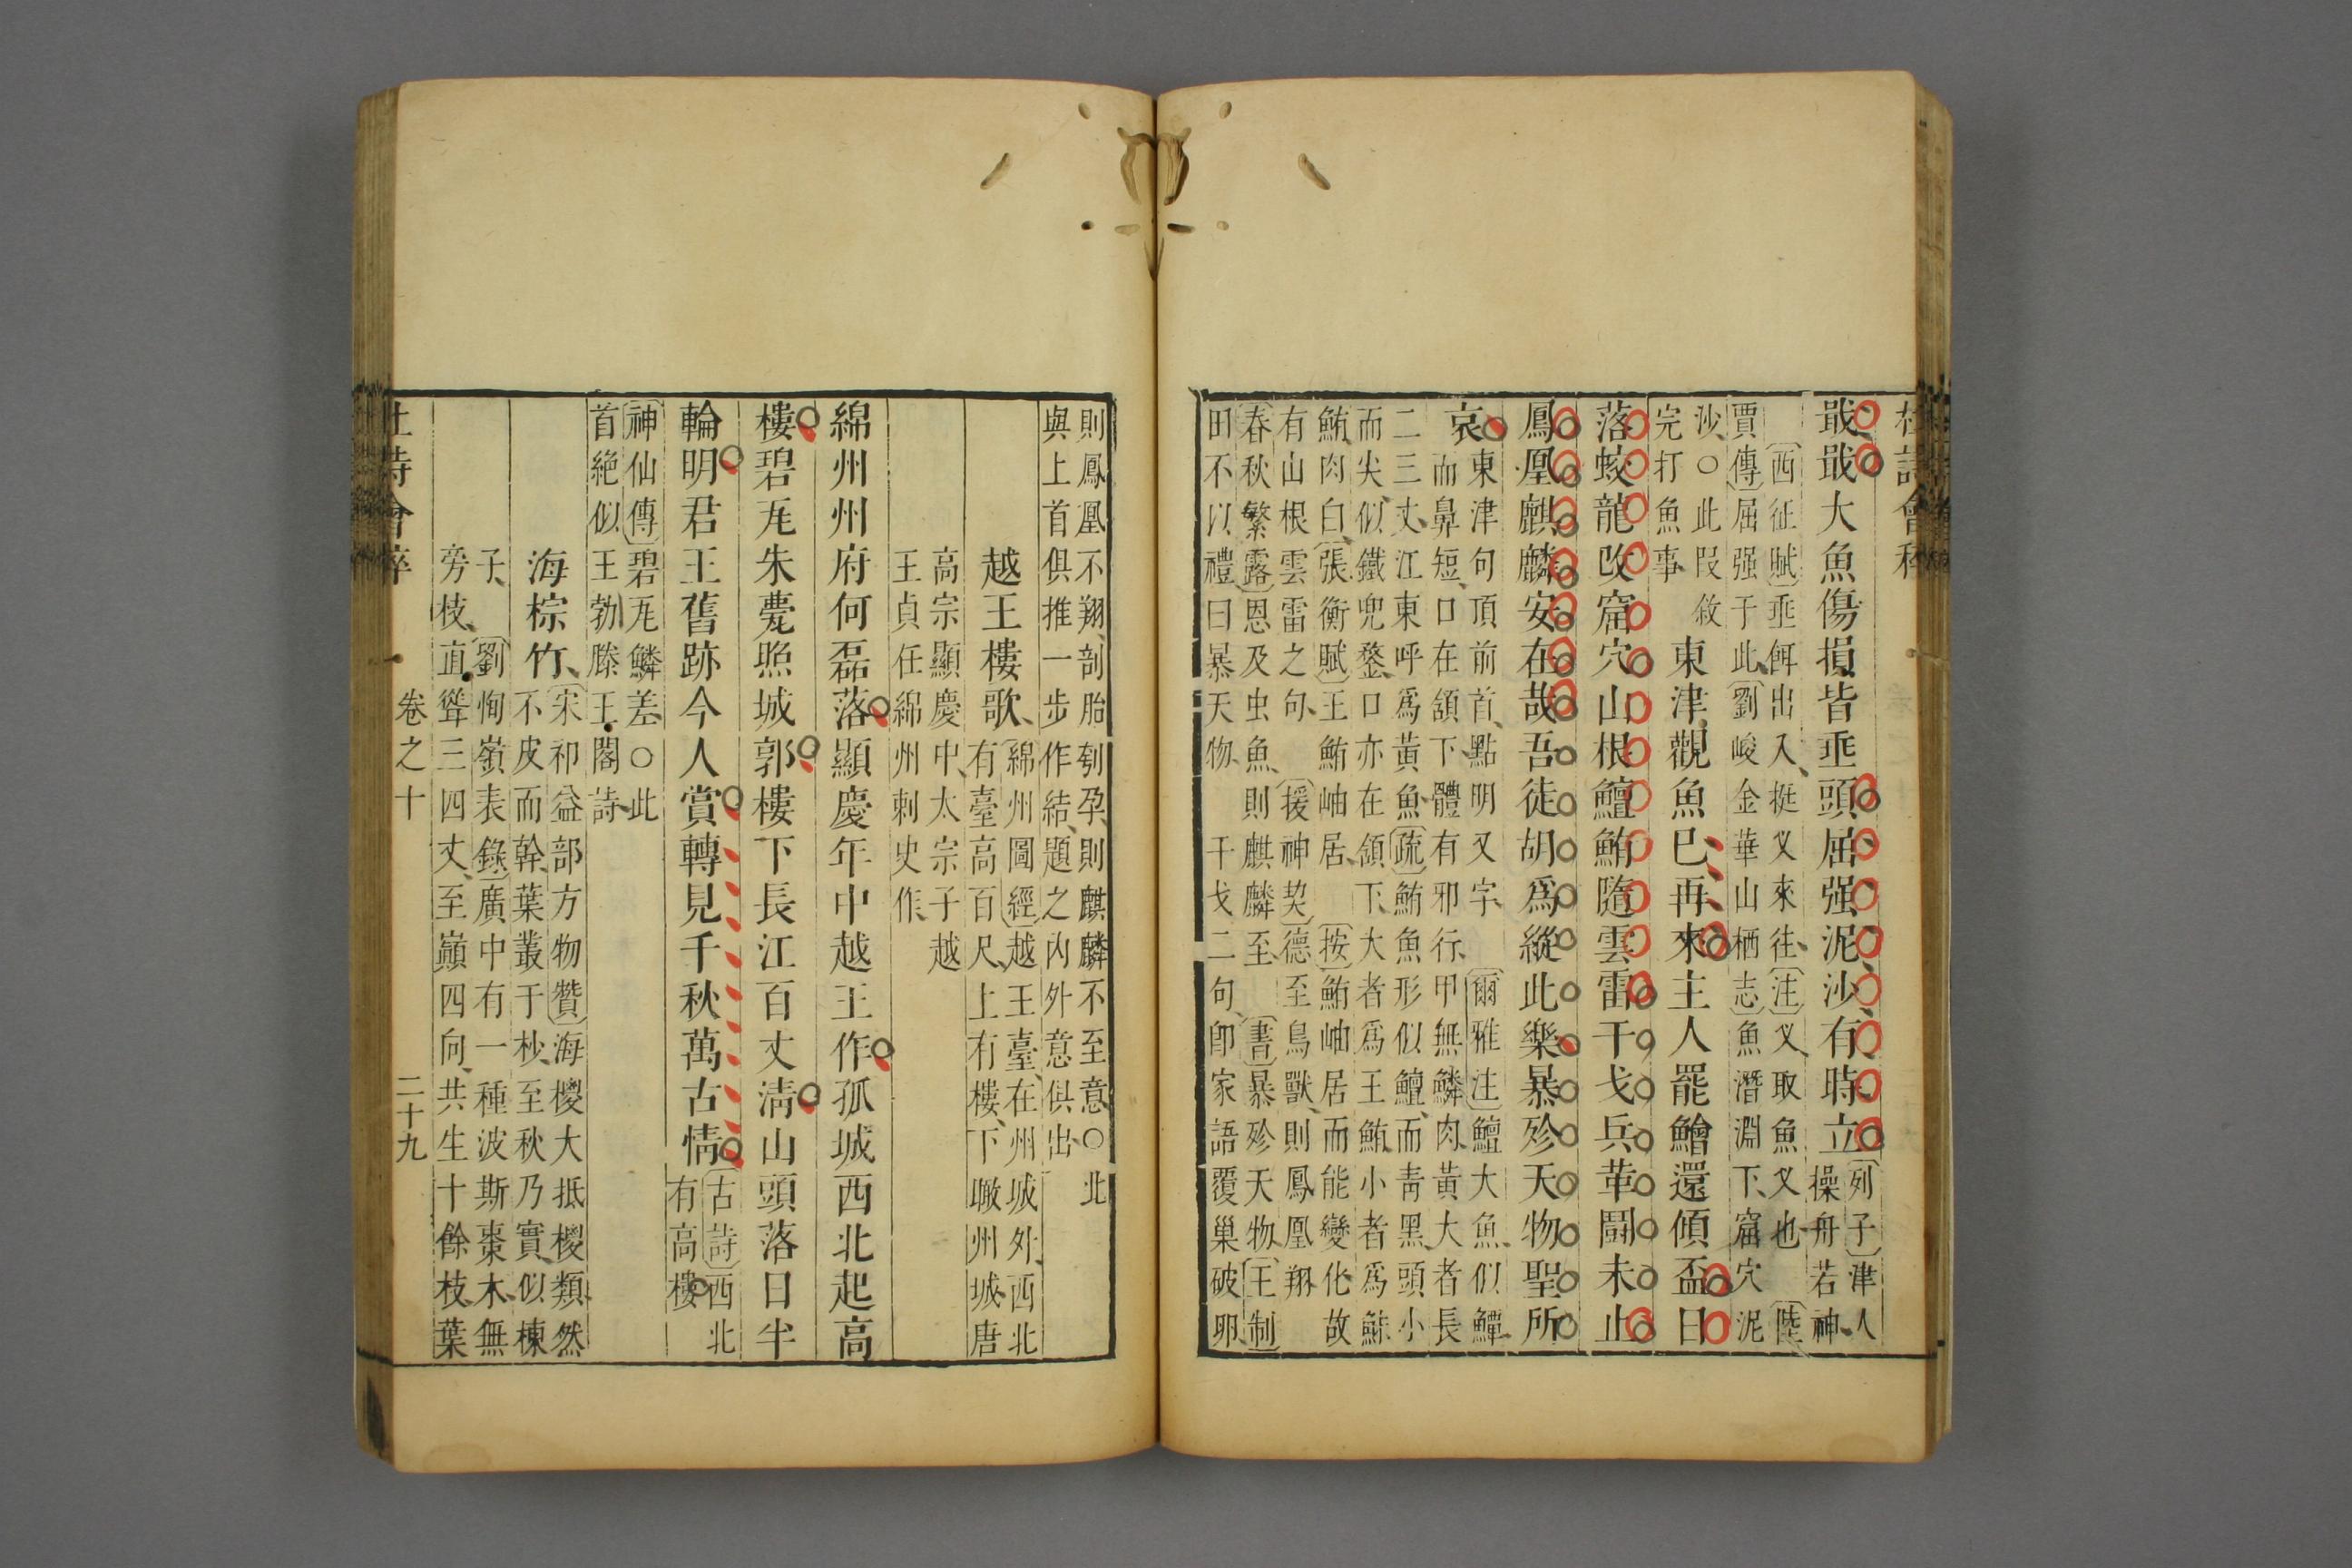 戢戢大魚傷損皆垂頭屈强泥沙有時立
列子津人
操舟若神
西征賦垂餌出入挺叉來往注叉取魚叉也 陸
賈傳屈强于此劉峻金華山栖志魚潛淵下窟穴泥
沙○此叚敘
完打魚事
東津觀魚巳再來主人罷鱠還傾盃日
落蛟龍改窟穴山根鱣鮪隨雲雷干戈兵革鬪未止
鳳凰麒麟安在哉吾徒胡爲縱此樂暴殄天物聖所
哀
東津句頂前首點明又字 爾雅注鱣大魚似鱏
而鼻短口在頷下體有邪行甲無鱗肉黃大者長
二三丈江東呼爲黃魚疏鮪魚形似鱣而靑黑頭小
而尖似鐵兜鍪口亦在頷下大者爲王鮪小者爲鮛
鮪肉白張衡賦王鮪岫居 按鮪岫居而能變化故
有山根雲雷之句 援神契德至鳥獸則鳳凰翔
春秋繁露恩及虫魚則麒麟至 書暴殄天物王制
田不以禮曰暴天物 干戈二句卽家語覆巢破卵
則鳳凰不翔剖胎刳孕則麒麟不至意○北
與上首俱推一步作結題之内外意俱出
越王樓歌
綿州圖經越王臺在州城外西北
有臺高百尺上有樓下瞰州城唐
高宗顯慶中太宗子越
王貞任綿州刺史作
綿州州府何磊落顯慶年中越王作孤城西北起高
樓碧瓦朱甍照城郭樓下長江百丈淸山頭落日半
輪明君王舊跡今人賞轉見千秋萬古情
古詩西北
有高樓
神仙傳碧瓦鱗差○此
首絶似王勃滕王閣詩
海棕竹
宋祁益部方物贊海椶大抵椶類然
不皮而幹葉叢于杪至秋乃實似楝
子 劉恂嶺表錄廣中有一種波斯棗木無
旁枝直聳三四丈至巔四向共生十餘枝葉
卷之十
二十九